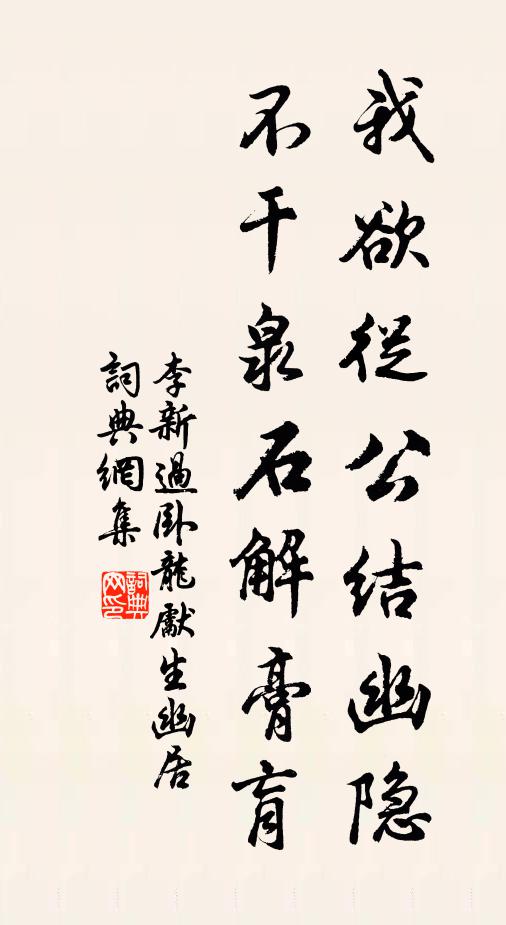 我欲從公結幽隐
不干泉石解膏肓
李新過卧龍獻生幽居
詞典網集
詞典
网印